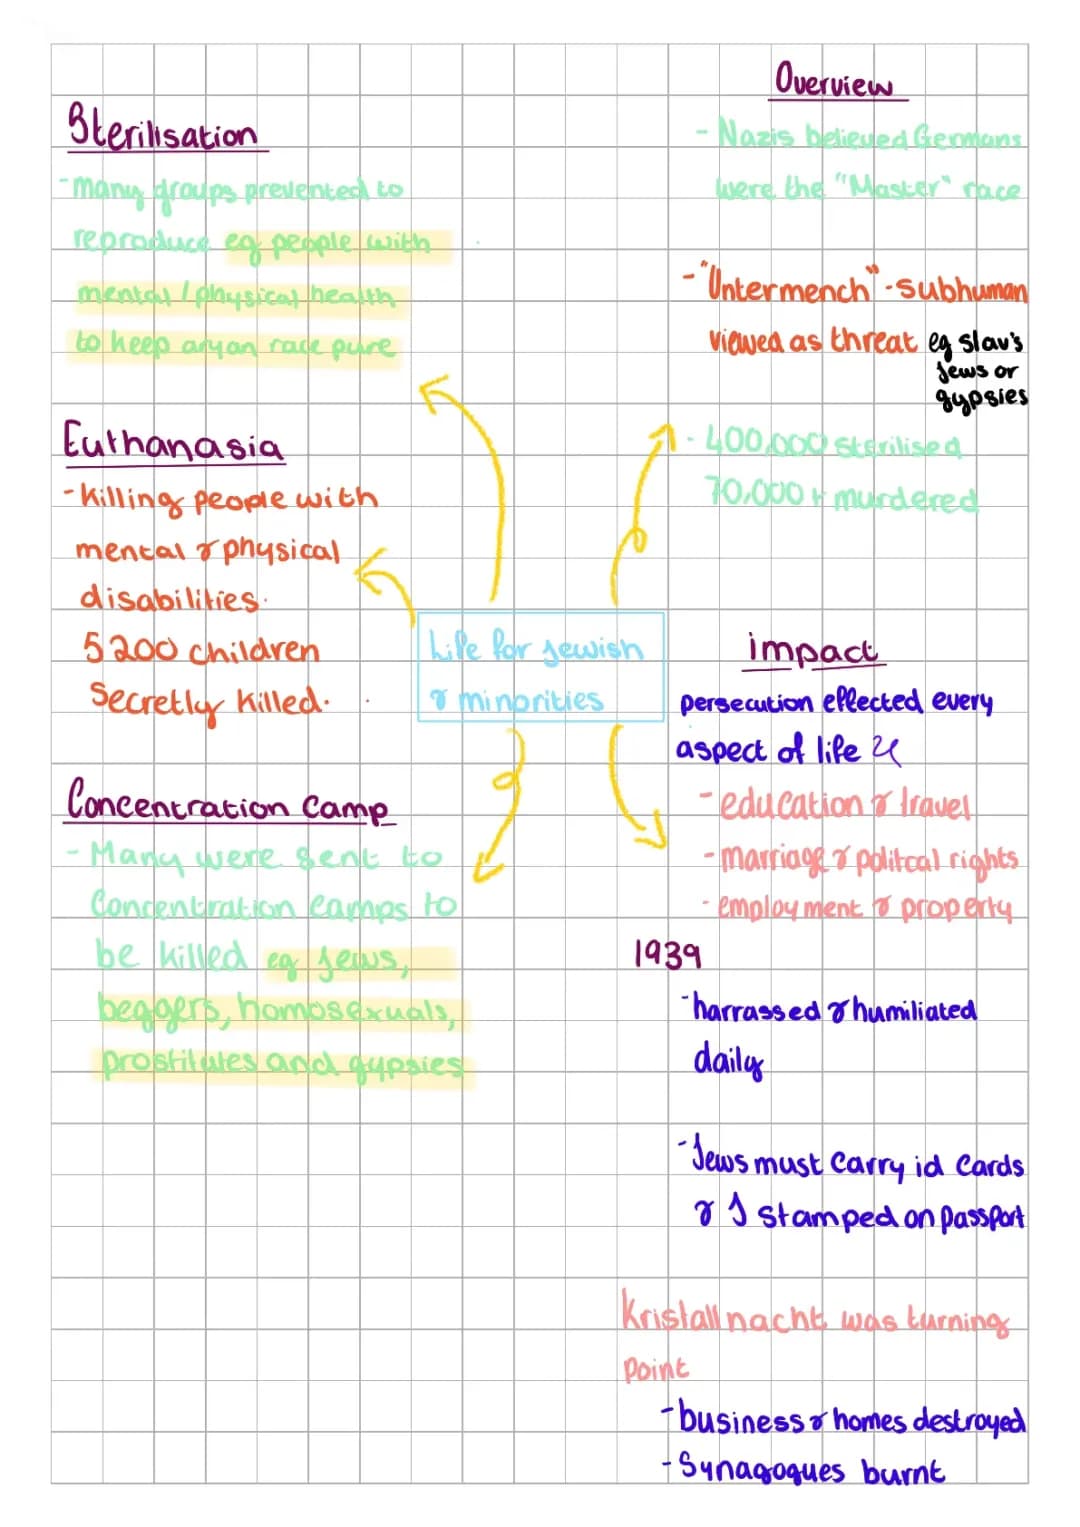 Sterilisation
-many groups prevented to
reproduce eg people with
mental / physical health
to keep aryan race pure
Euthanasia
-killing people with
mental & physical
disabilities.
5200 children
Secretly killed.
Concentration Camp
- Many were sent to
Concentration Camps to
be killed eg Jews,
beggers, homosexuals,
prostitutes and gypsies
Life for Jewish
& minorities
Overview
- Nazis believed Germans
were the "Master" race
-"Untermench"-subhuman
viewed as threat eg slav's
Jews or
gypsies
- 400,000 sterilised
70,000 + murdered
impact
persecution effected every
aspect of life
- education & travel
- marriage & politcal rights
- employment & property
1939
-harrassed & humiliated
daily
-Jews must carry id cards
& J stamped on passport
Kristallnacht was turning
point
-business & homes destroyed
-Synagogues burnt